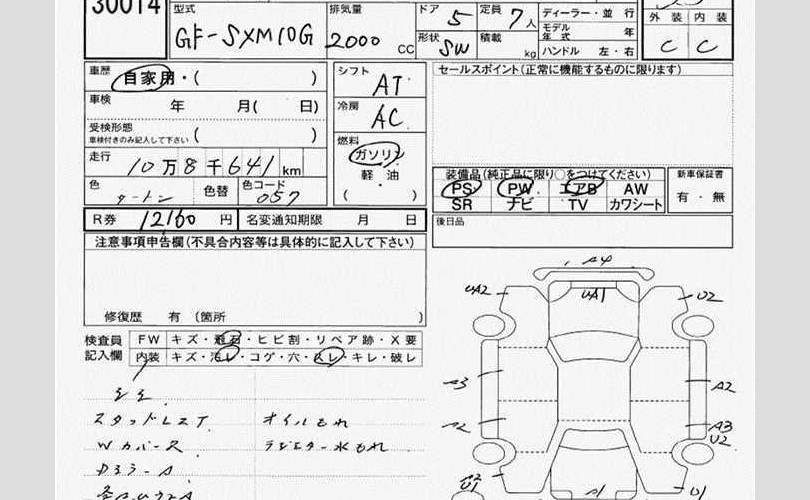 30014
型式 GF-SXM10G
排気量 2000 CC
ドア 5
定員 7人
形状 SW
積載 kg
ディーラー・並行
モデル年式 年
ハンドル 左・右
外装 内装
C C
車歴 自家用・( )
車検 年 月( 日)
受検形態
車検付きのみ記入して下さい ( )
走行 10万8千641km
色 ツートン 色替 色コード 057
シフト AT
冷房 AC
燃料
ガソリン
軽油
( )
セールスポイント(正常に機能するものに限ります)
装備品(純正品に限り○をつけてください)
PS PW エアB AW
SR ナビ TV カワシート
新車保証書
有・無
後日品
R券 12160円 名変通知期限 月 日
注意事項申告欄(不具合内容等は具体的に記入して下さい)
修復歴 有 (箇所 )
検査員記入欄
FW キズ・飛石・ヒビ割・リペア跡・X要
内装 キズ・汚レ・コゲ・穴・スレ・キレ・破レ
オイルもれ
Wカバーズ ラジエター水もれ
Dミラー A
A4
UA2 UA1 U2
A3 A2
A2 A3
U2
A1 U1